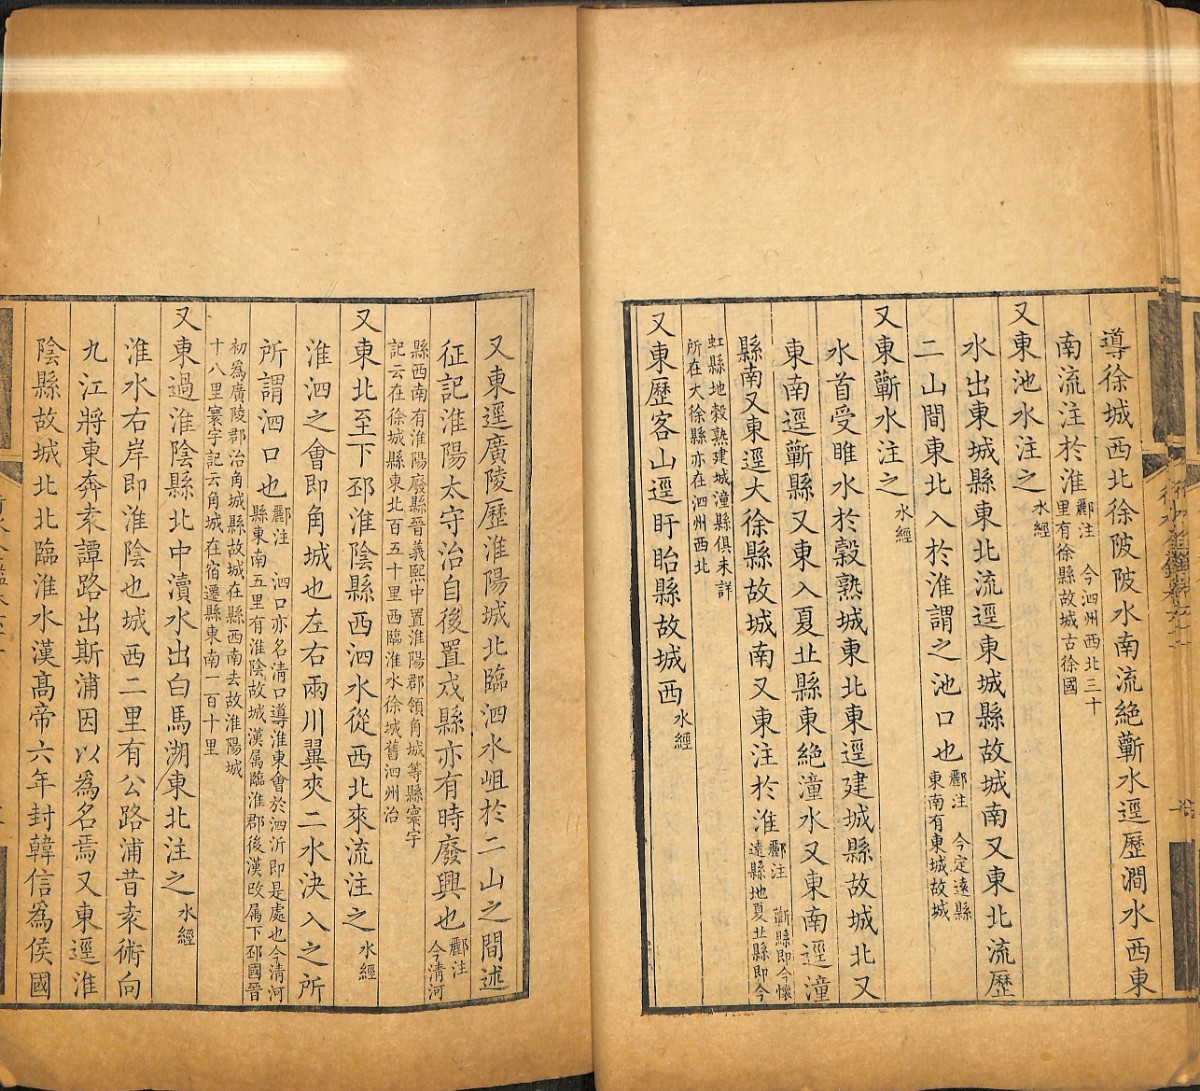 導徐城西北徐陂陂水南流絶蘄水逕歷澗水西東
南流注於淮酈注 今泗州西北三十
里有徐縣故城古徐國
又東池水注之水經
水出東城縣東北流逕東城縣故城南又東北流歷
二山間東北入於淮謂之池口也酈注 今定遠縣
東南有東城故城
又東蘄水注之水經
水首受睢水於穀熟城東北東逕建城縣故城北又
東南逕蘄縣又東入夏丘縣東絶潼水又東南逕潼
縣南又東逕大徐縣故城南又東注於淮酈注 蘄縣即今懷
遠縣地夏丘縣即今
虹縣地穀熟建城潼縣俱未詳
所在大徐縣亦在泗州西北
又東歷客山逕盱眙縣故城西水經
又東逕廣陵歷淮陽城北臨泗水岨於二山之間述
征記淮陽太守治自後置戍縣亦有時廢興也酈注
今清河
縣西南有淮陽廢縣晉義熙中置淮陽郡領角城等縣寰宇
記云在徐城縣東北百五十里西臨淮水徐城舊泗州治
又東北至下邳淮陰縣西泗水從西北來流注之水經
淮泗之會即角城也左右兩川翼夾二水決入之所
所謂泗口也酈注 泗口亦名淸口導淮東會於泗沂即是處也今清河
縣東南五里有淮陰故城漢属臨淮郡後漢改属下邳國晉
初為廣陵郡治角城縣故城在縣西南去故淮陽城
十八里寰宇記云角城在宿遷縣東南一百十里
又東過淮陰縣北中瀆水出白馬湖東北注之水經
淮水右岸即淮陰也城西二里有公路浦昔袁術向
九江將東奔袁譚路出斯浦因以為名焉又東逕淮
陰縣故城北北臨淮水漢高帝六年封韓信為侯國